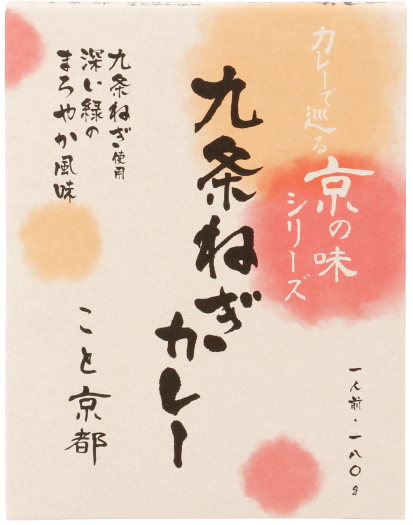 カレーで巡る
京の味
シリーズ
九条ねぎ
カレー
九条ねぎ使用
深い緑の
まろやか風味
こと京都
一人前・一八〇g